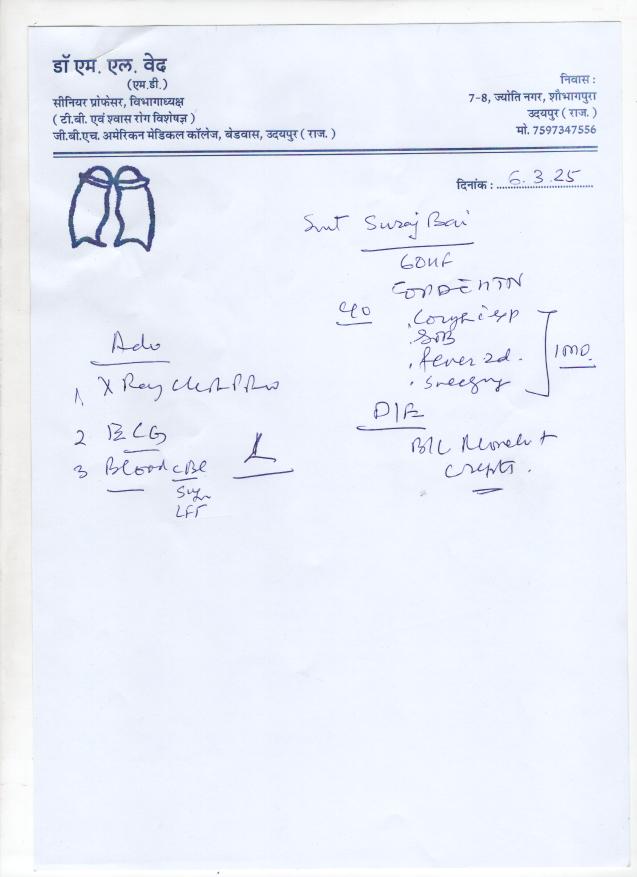 डॉ एम. एल. वेद
(एम.डी.)
सीनियर प्रोफेसर, विभागाध्यक्ष
( टी.बी. एवं श्वास रोग विशेषज्ञ )
जी.बी.एच. अमेरिकन मेडिकल कॉलेज, बेडवास, उदयपुर ( राज. )
निवास :
7-8, ज्योति नगर, शौभागपुरा
उदयपुर ( राज. )
मो. 7597347556
दिनांक : 6.3.25
Smt Suraj Bai
HTN
SOB
. fever 2d.
. sneezing
1 mo.
O/E
B/L Rhonchi +
Crepts.
Adv
1 X Ray Chest
2 ECG
3 Blood CBC
LFT